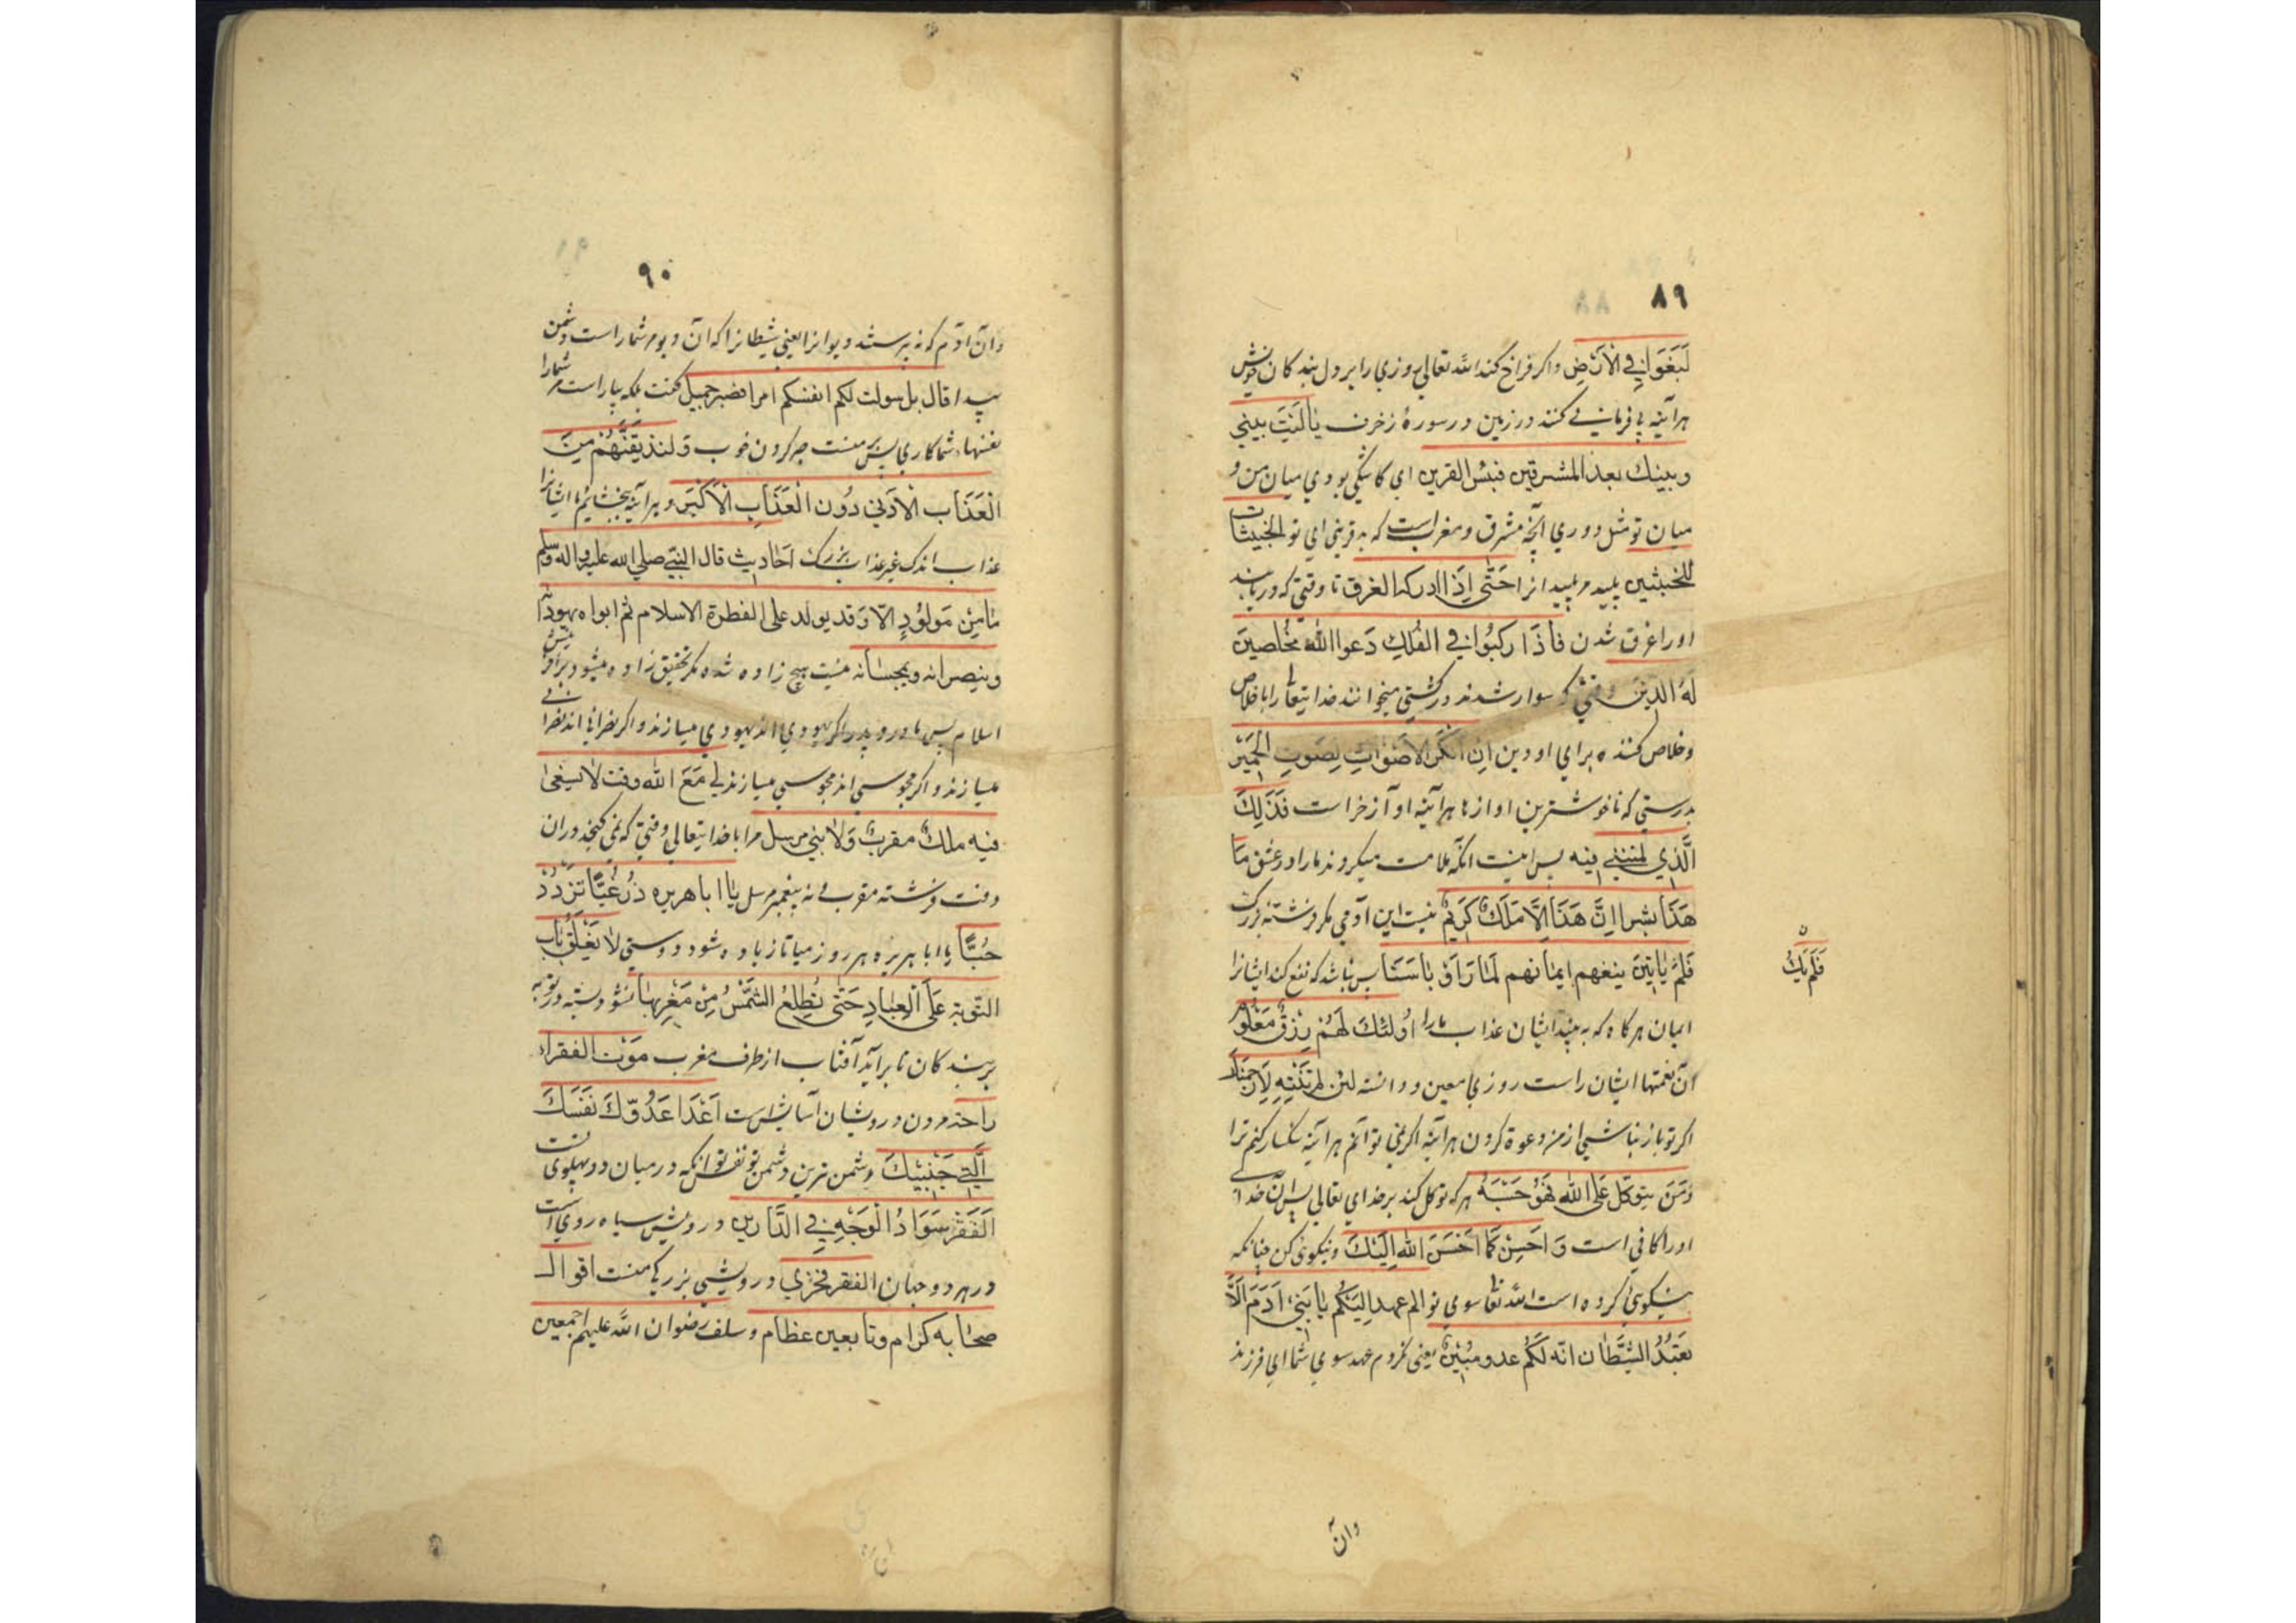 ۸۹
لَبَغَوا فِي الْاَرْضِ واکر فراخ کند الله تعالی روزي را بر دل بندکان خویش
هراٰینه نا فرمانی کنند در زمین در سورهٔ زخرف یا لَیْتَ بیني
وبینك بعد المشرقین فبئس القرین ای کاشکی بودي میان من و
میان تو مثل دوري آنچه مشرق ومغرب است که بد قریني اي تو الخبیثات
للخبثین پلید مر پلیدانرا حَتّٰی اِذَا ادرکه الغرق تا وقتي که دریابد
اورا غرق شدن فَاِذَا رَكِبُوا فِي الفُلكِ دَعوا الله مخُلصینَ
لَهُ الدینَ وقتي که سوار شدند در کشتي میخوانند خدایتعالٰی را باخلاص
وخلاص کننده براي او دین اِن انكَرَ الاَصْوَاتِ لِصَوتِ الحَمِیْرِ
بدرستي که ناخوشترین اوازها هراٰینه اوآز خراست فَذَلِكَ
الَّذِي لمتنني فیه پس اینست انکه ملامت میکردند مارا در عشق مَا
هَذَا بشرا اِنَّ هَذَا اِلَّا مَلَكٌ كَرِیْمٌ نیست این آدمي مکر فرشته بزرك
فَلَمْ یَاتِینَ ینفعهم ایمانهم لَمَا رَاَوْ بَاسَنَا پس نباشد که نفع کند ایشانرا
فَلَم یَكُ
ایمان هرکاه که به بینند ایشان عذاب مارا اُولئكَ لَهُمْ رِزْقٌ مَعْلُوْمٌ
آن نعمتها ایشان راست روزي معین ودانسته لئن لم تَنْتَهِ لَاَرْجمَنَّكَ
اکر تو باز نباشي از من دعوة کردن هراٰینه اکر نمي توانم هراٰینه سنکسار کنم ترا
وَمَنَ یتوكَّل عَلَی الله فَهَوُ حَسْبَهُ هرکه توکل کند بر خداي تعالی پس آن خداے
اورا کافي است وَ اَحسِنْ كَمَا اَحْسَنَ الله اِلَیْكَ ونیکوئ کن چنانکه
نیکوئي کرده است الله تعالٰی سوي تو الم عهد اِلَیْكُم یَا بَنِيْ اٰدَمَ اَلَّا
تعَبُدُ الشَّیَّطان انّه لَكُم عدو مُبیْنٌ یعني نکردم عهد سوي شما اي فرزند
وان
۹۰
وان آدم که نه پرستند دیوانرا یعني شیطانرا که ان دیو مر شمارا است دشمن
پیدا قال بل سولت لکم انفسکم امرا فصبر جمیل کفت بلکه بیاراست مر شمارا
نفسهاء شما کاري پس بر منست صبر کردن خوب وَلنذیقَنَّهُمْ مِنَ
الْعَذَاب الْادَني دُون الْعَذَابِ الْاَكْبَرِ وهراٰینه بخشانیم ما ایشانرا
عذاب اندک غیر عذاب بزرك اَحَادیث قال النبيّ صلي الله علیه واله وسلم
مَامِنْ مَولُوْدٍ اِلّا وَقد یولد علی الفطرة الاسلام ثم ابواه یهودانه
وینصرانه ویمجسانه نیست هیچ زاده شده مکر تحقیق زاده میشود بر آفرینش
اسلام پس مادر و پدر اکر یهودي اند یهودي میسازند واکر نصراني اند نصراني
میسازند و اکر مجوسي اند مجوسي میسازند لِي مَعَ الله وقت لا یسعني
فیه ملكٌ مقربٌ وَلَا نبي مرسل مرا با خدایتعالی وقتي که نمي کنجد دران
وقت فرشته مقرب و نه پیغمبر مرسل یا ابا هریره زُرْ غِبًّا تَزْدَدْ
حُبًّا یا ابا هریره هر روز میا تا زیاده شود دوستي لَا یَغْلَقُ بَاب
التّوبة عَلَی الْعِبَادِ حَتّی یُطلِعُ الشَّمْسُ مِنْ مَغْرِبها نشود بسته در توبه
بر بندکان تا برآید آفتاب از طرف مغرب مَوْت الفقراء
راحة مردن درویشان آسایش است اَعْدَا عَدُوِّكَ نَفَسَكَ
الَّتِي جَنْبَیْكَ دشمن ترین دشمن تو نفس تو انکه درمیان دو پهلوي تست
اَلْفَقْرُ سَوَادُ الْوَجْهِ فِي الدَّارَین درویش سیاه روي است
در هر دو جهان الفقر فخري درویشي بزرکي منست اقوال
صحابه کرام وتابعین عظام و سلف رضوان الله علیهم اجمعین